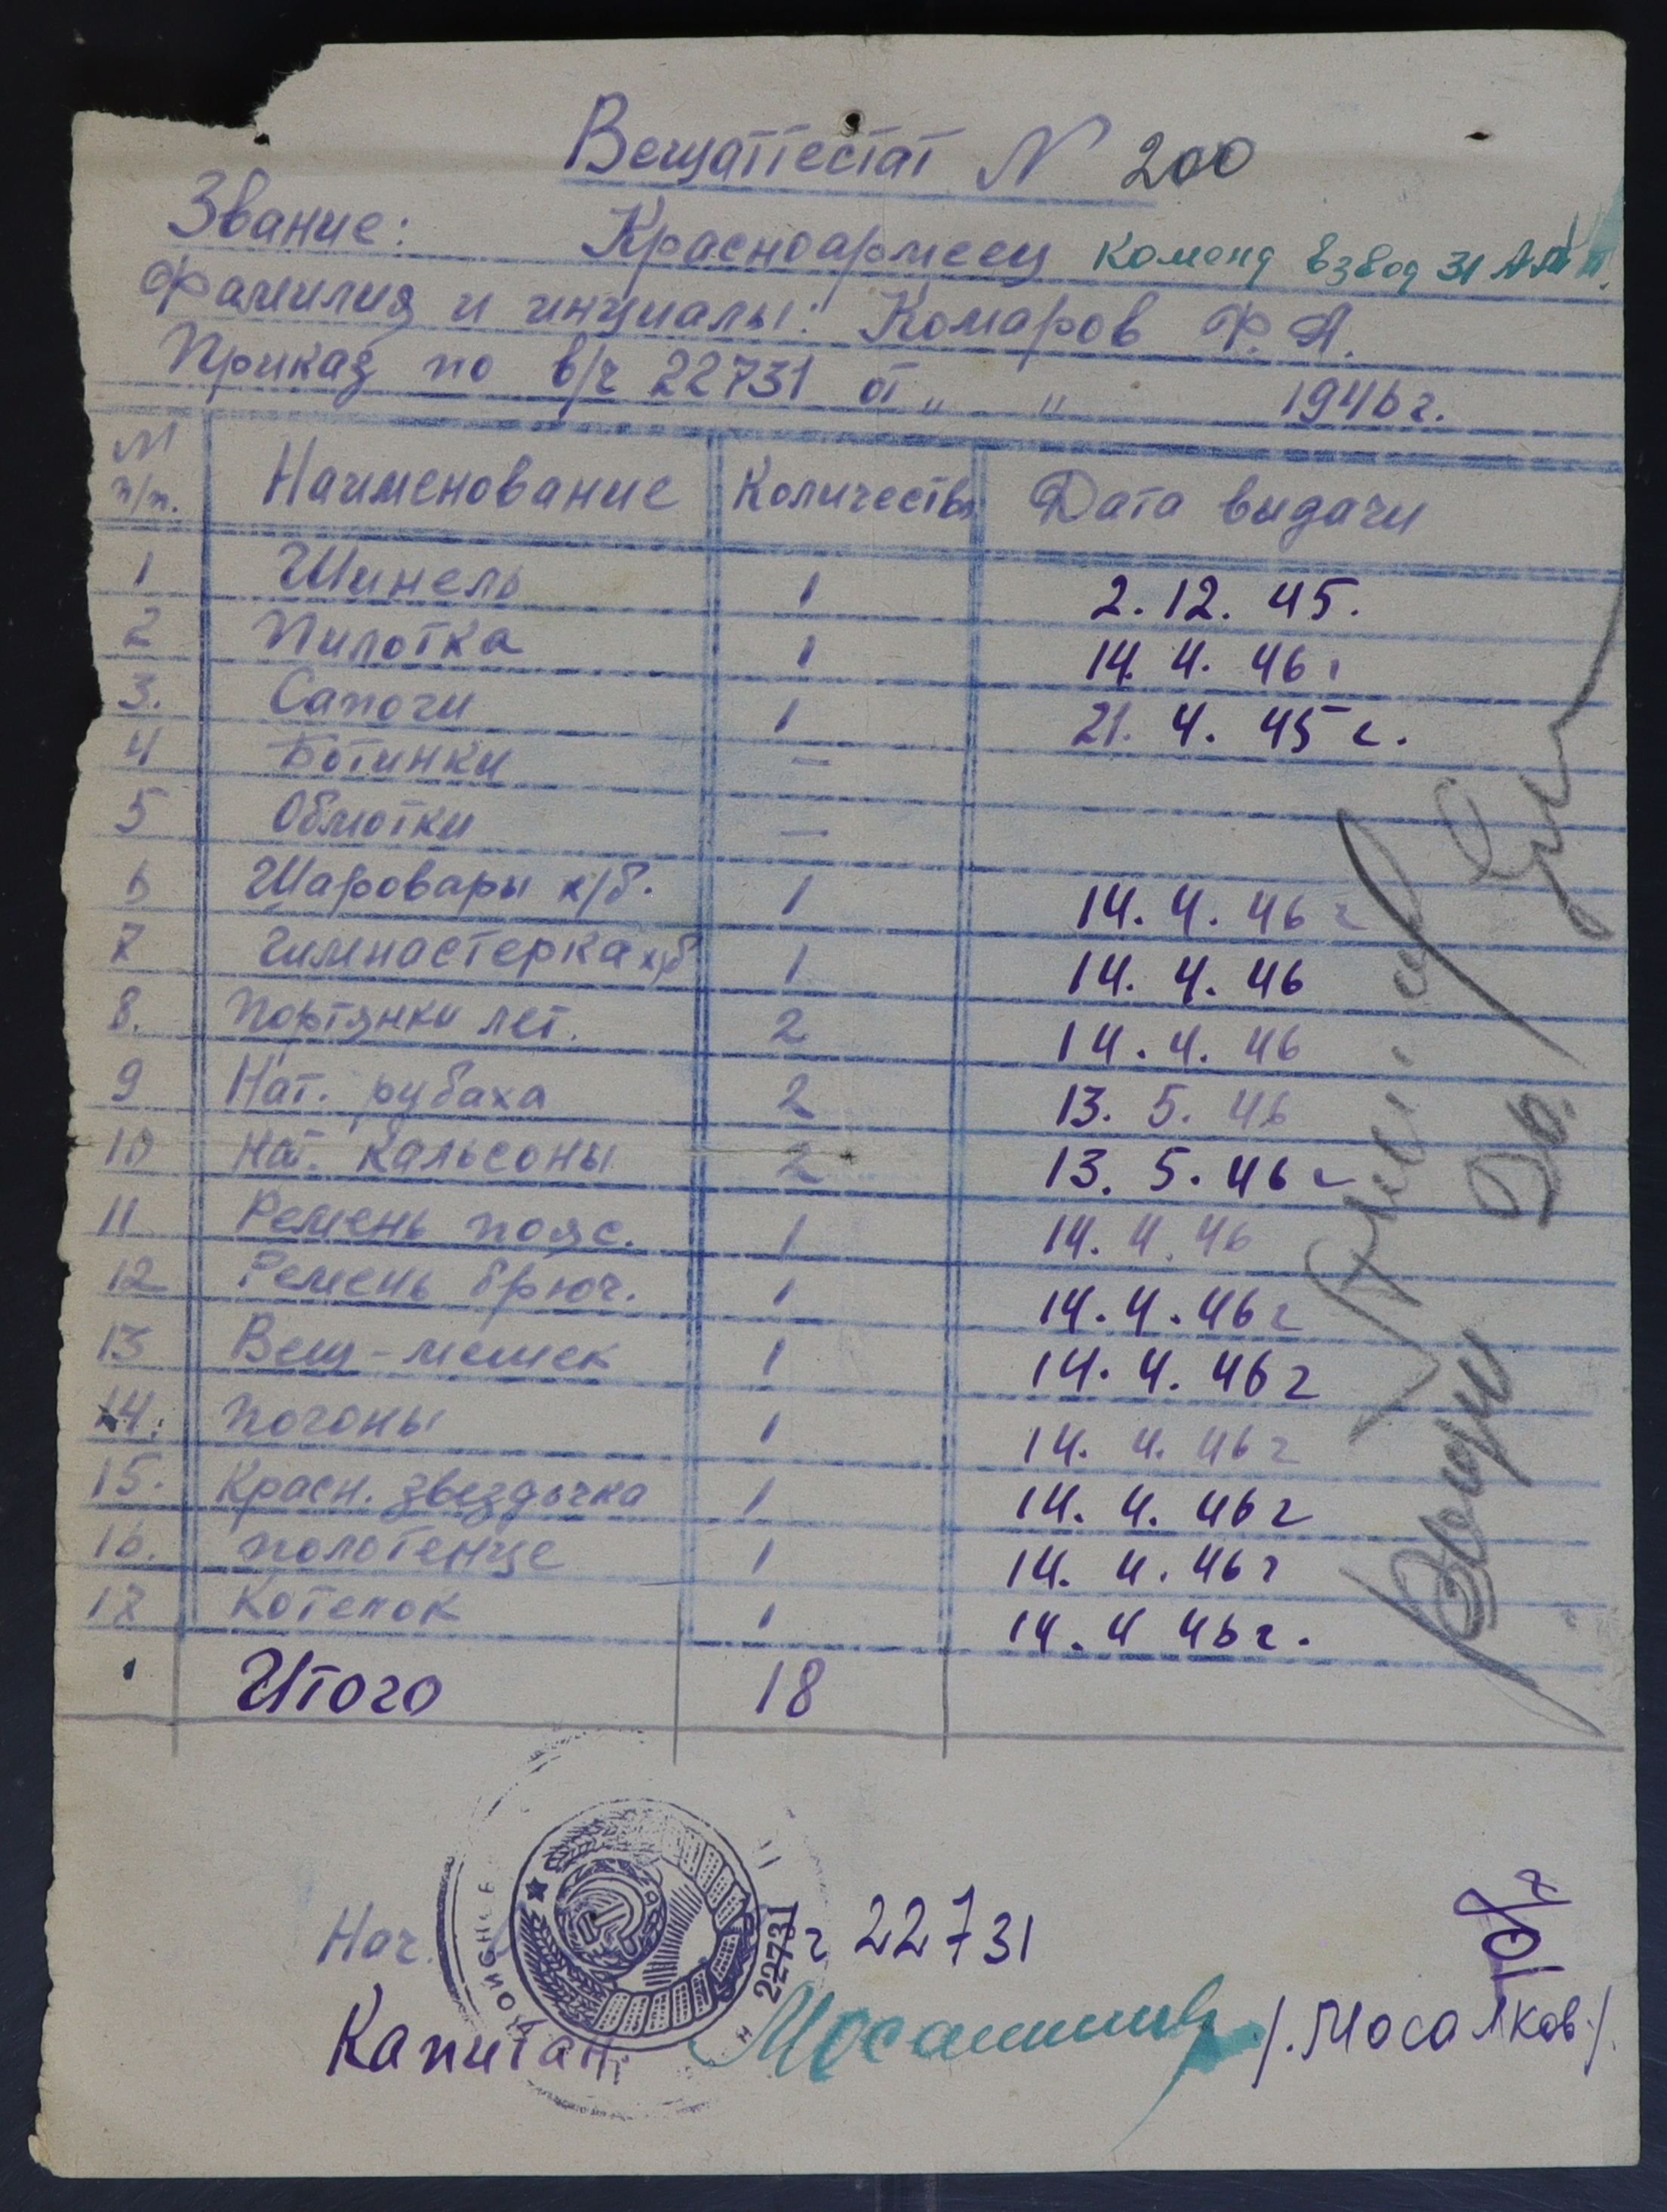 Вещаттестат N 200
Звание: Красноармеец Коменд взвод 31
Фамилия и инциалы: Комаров Ф. А.
Приказ по в/ч 22731 от " " 1946г.
N п/п. Наименование Количество Дата выдачи
1 Шинель 1 2.12.45.
2 Пилотка 1 14.4.46г
3. Сапоги 1 21.4.45г.
4 Ботинки —
5 Обмотки —
6 Шаровары х/б. 1 14.4.46г
7 Гимнастерка х/б 1 14.4.46
8. Портянки лет. 2 14.4.46
9 Нат. рубаха 2 13.5.46
10 Нат. Кальсоны 2 13.5.46г
11 Ремень пояс. 1 14.4.46
12 Ремень брюч. 1 14.4.46г
13 Вещ-мешек 1 14.4.46г
14. Погоны 1 14.4.46г
15. Красн. звездочка 1 14.4.46г
16. Полотенце 1 14.4.46г
17 Котелок 1 14.4 46г.
Итого 18
Нач. 22731
22731
Капитан /.Мосалков./